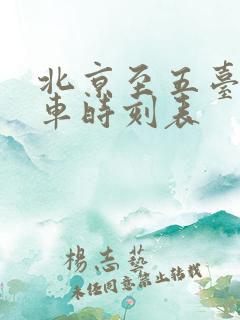 北京至五臺
車時刻表
楊志藝
未经同意禁止转载